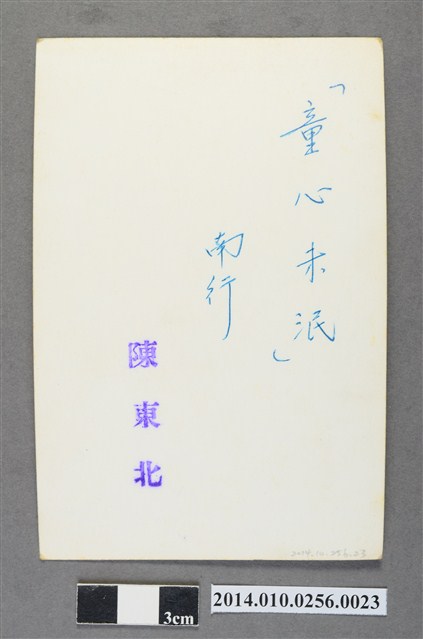 「童心未泯」
南行
陳東北
2014.10.256.23
3cm
2014.010.0256.0023